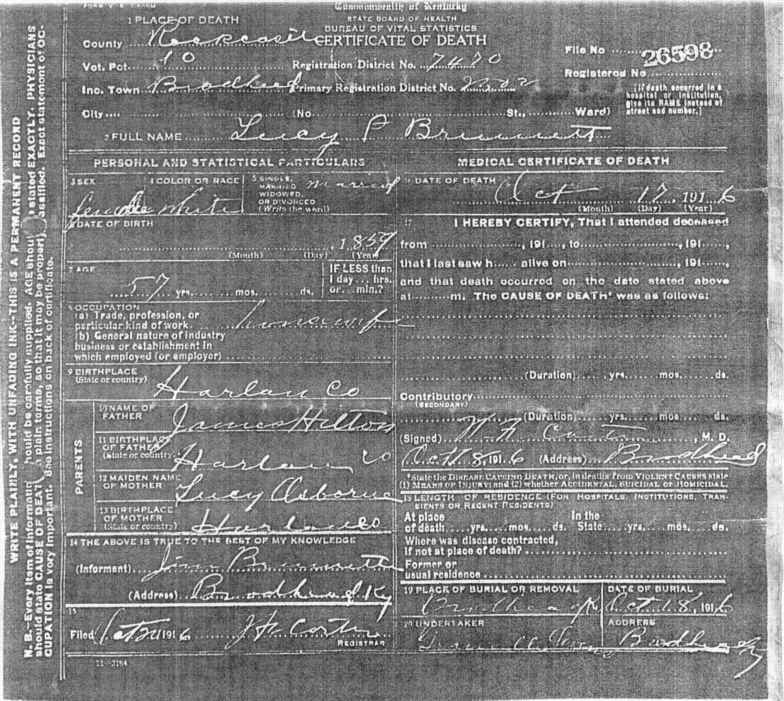 Commonwealth of Kentucky
STATE BOARD OF HEALTH
BUREAU OF VITAL STATISTICS
CERTIFICATE OF DEATH
1 PLACE OF DEATH
County Rockcastle
Vot. Pct. 10 Registration District No.
Inc. Town Brodhead Primary Registration District No.
City (No. St., Ward)
File No 26598
Registered No
[If death occurred in a hospital or institution, give its NAME instead of street and number.]
2 FULL NAME Lucy P Brummett
PERSONAL AND STATISTICAL PARTICULARS
3 SEX female
4 COLOR OR RACE White
5 SINGLE, MARRIED, WIDOWED, OR DIVORCED (Write the word) married
6 DATE OF BIRTH
, 1859
(Month) (Day) (Year)
7 AGE
57 yrs. mos. ds.
IF LESS than 1 day ... hrs. or ... min.?
8 OCCUPATION
(a) Trade, profession, or particular kind of work.
(b) General nature of industry business or establishment in which employed (or employer)
9 BIRTHPLACE
(State or country) Harlan Co
PARENTS
10 NAME OF FATHER James Hilton
11 BIRTHPLACE OF FATHER (State or country) Harlan Co
12 MAIDEN NAME OF MOTHER Lucy Osborne
13 BIRTHPLACE OF MOTHER (State or country) Harlan Co
14 THE ABOVE IS TRUE TO THE BEST OF MY KNOWLEDGE
(Informant) Jim Brummett
(Address) Brodhead, Ky
15
Filed Oct 1916
REGISTRAR
11-3184
MEDICAL CERTIFICATE OF DEATH
16 DATE OF DEATH
Oct 17, 1916
(Month) (Day) (Year)
17 I HEREBY CERTIFY, That I attended deceased
from , 191 , to , 191 ,
that I last saw h alive on , 191 ,
and that death occurred on the date stated above
at m. The CAUSE OF DEATH* was as follows:
(Duration) yrs. mos. ds.
Contributory
(SECONDARY)
(Duration) yrs. mos. ds.
(Signed) , M. D.
Oct 18, 1916 (Address) Brodhead
*State the DISEASE CAUSING DEATH, or, in deaths from VIOLENT CAUSES state
(1) MEANS OF INJURY; and (2) whether ACCIDENTAL, SUICIDAL or HOMICIDAL.
18 LENGTH OF RESIDENCE (FOR HOSPITALS, INSTITUTIONS, TRANSIENTS OR RECENT RESIDENTS)
At place of death yrs. mos. ds. In the State yrs. mos. ds.
Where was disease contracted,
If not at place of death?
Former or
usual residence
19 PLACE OF BURIAL OR REMOVAL Brodhead Ky
DATE OF BURIAL Oct 18, 1916
20 UNDERTAKER
ADDRESS Brodhead Ky
WRITE PLAINLY, WITH UNFADING INK—THIS IS A PERMANENT RECORD
N. B.—Every item of information should be carefully supplied. AGE should be stated EXACTLY. PHYSICIANS
should state CAUSE OF DEATH in plain terms, so that it may be properly classified. Exact statement of OC-
CUPATION is very important. See instructions on back of certificate.